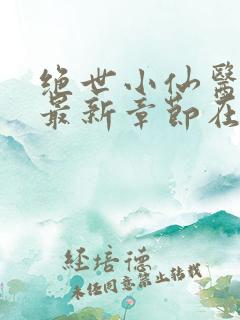 绝世小仙醫
最新章節在
经培德
未经同意禁止转载